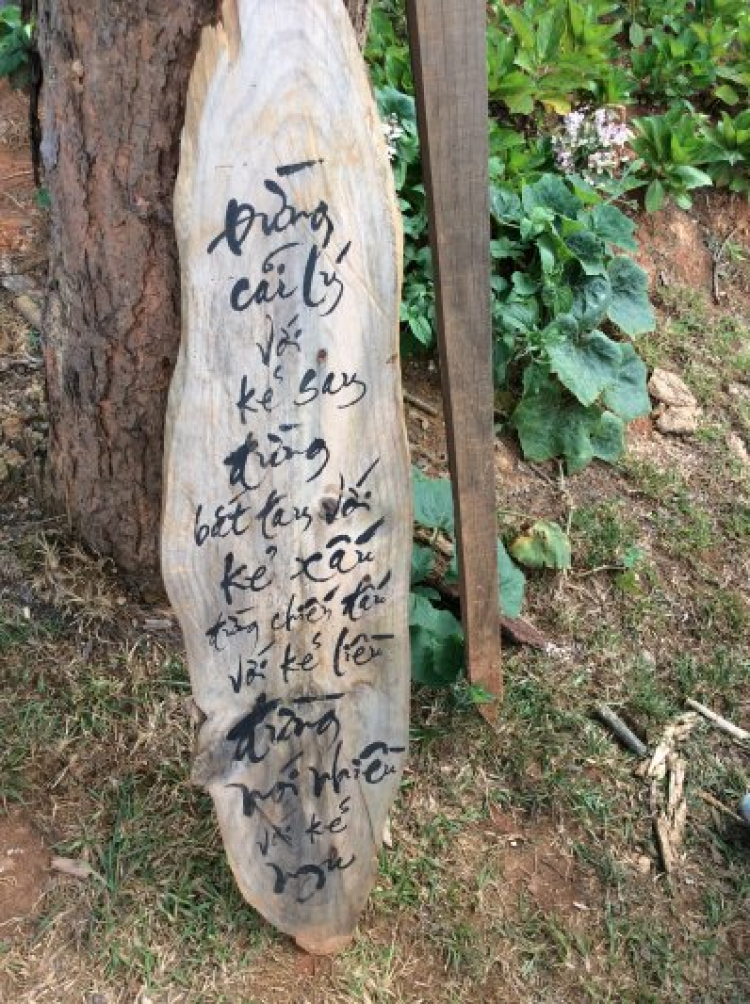 Đừng
cãi lý
với
kẻ say
đừng
bắt tay với
kẻ xấu
đừng chiến đấu
với kẻ liều
đừng
nói nhiều
với kẻ
ngu